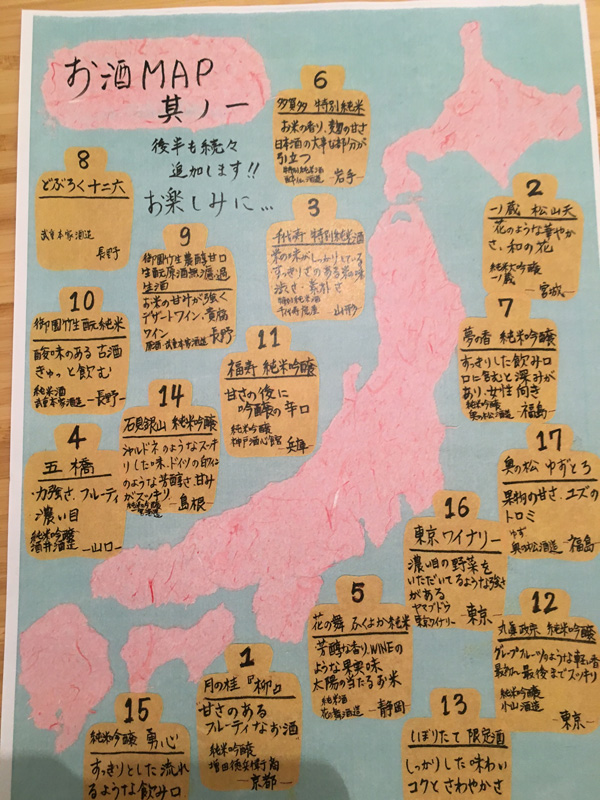 お酒MAP
其ノ一
後半も続々
追加します!!
お楽しみに…
6
多賀多 特別純米
お米の香り、麹の甘さ
日本酒の大事な部分が
引立つ
特別純米酒
岩手
8
どぶろく十二六
武重本家酒造
長野
3
千代寿 特別純米酒
米の味がしっかりしている
すっきりさのある米の味
渋さ・素朴さ
特別純米酒
千代寿虎屋
山形
2
一ノ蔵 松山天
花のような華やか
さ、和の花
純米大吟醸
一ノ蔵
宮城
9
御園竹生酛濃醇甘口
生酛原酒無濾過
生酒
お米の甘汁が強く
デザートワイン・貴腐
ワイン
武重本家酒造
長野
10
御園竹生酛純米
酸味のある古酒
きゅっと飲む
純米酒
武重本家酒造
長野
7
夢の香 純米吟醸
すっきりした飲み口
口に含むと深みが
あり、女性向き
純米吟醸
奥の松酒造
福島
11
福寿 純米吟醸
甘さの後に
吟醸の辛口
純米吟醸
神戸酒心館
兵庫
14
石見銀山 純米吟醸
シャルドネのようなスッキ
リした味、ドイツの白ワイン
のような芳醇さ、甘み
がスッキリ
純米吟醸
島根
4
五橋
力強さ、フルーティ
濃い目
純米吟醸
酒井酒造
山口
17
奥の松 ゆずとろ
果物の甘さ、ユズの
トロミ
ゆず
奥の松酒造
福島
16
東京ワイナリー
濃い目の野菜を
いただいてるような強さ
がある
ヤマブドウ
東京ワイナリー
東京
5
花の舞 ふくよか純米
芳醇な香り、WINEの
ような果実味
太陽の当たるお米
純米酒
花の舞酒造
静岡
12
丸眞政宗 純米吟醸
グレープフルーツのような軽い香
最初から最後までスッキリ
純米吟醸
小山酒造
東京
1
月の桂『柳』
甘さのある
フルーティなお酒
純米吟醸
増田徳兵衛商
京都
15
純米吟醸 勇心
すっきりとした流れ
るような飲み口
13
しぼりたて 限定酒
しっかりした味わい
コクとさわやかさ